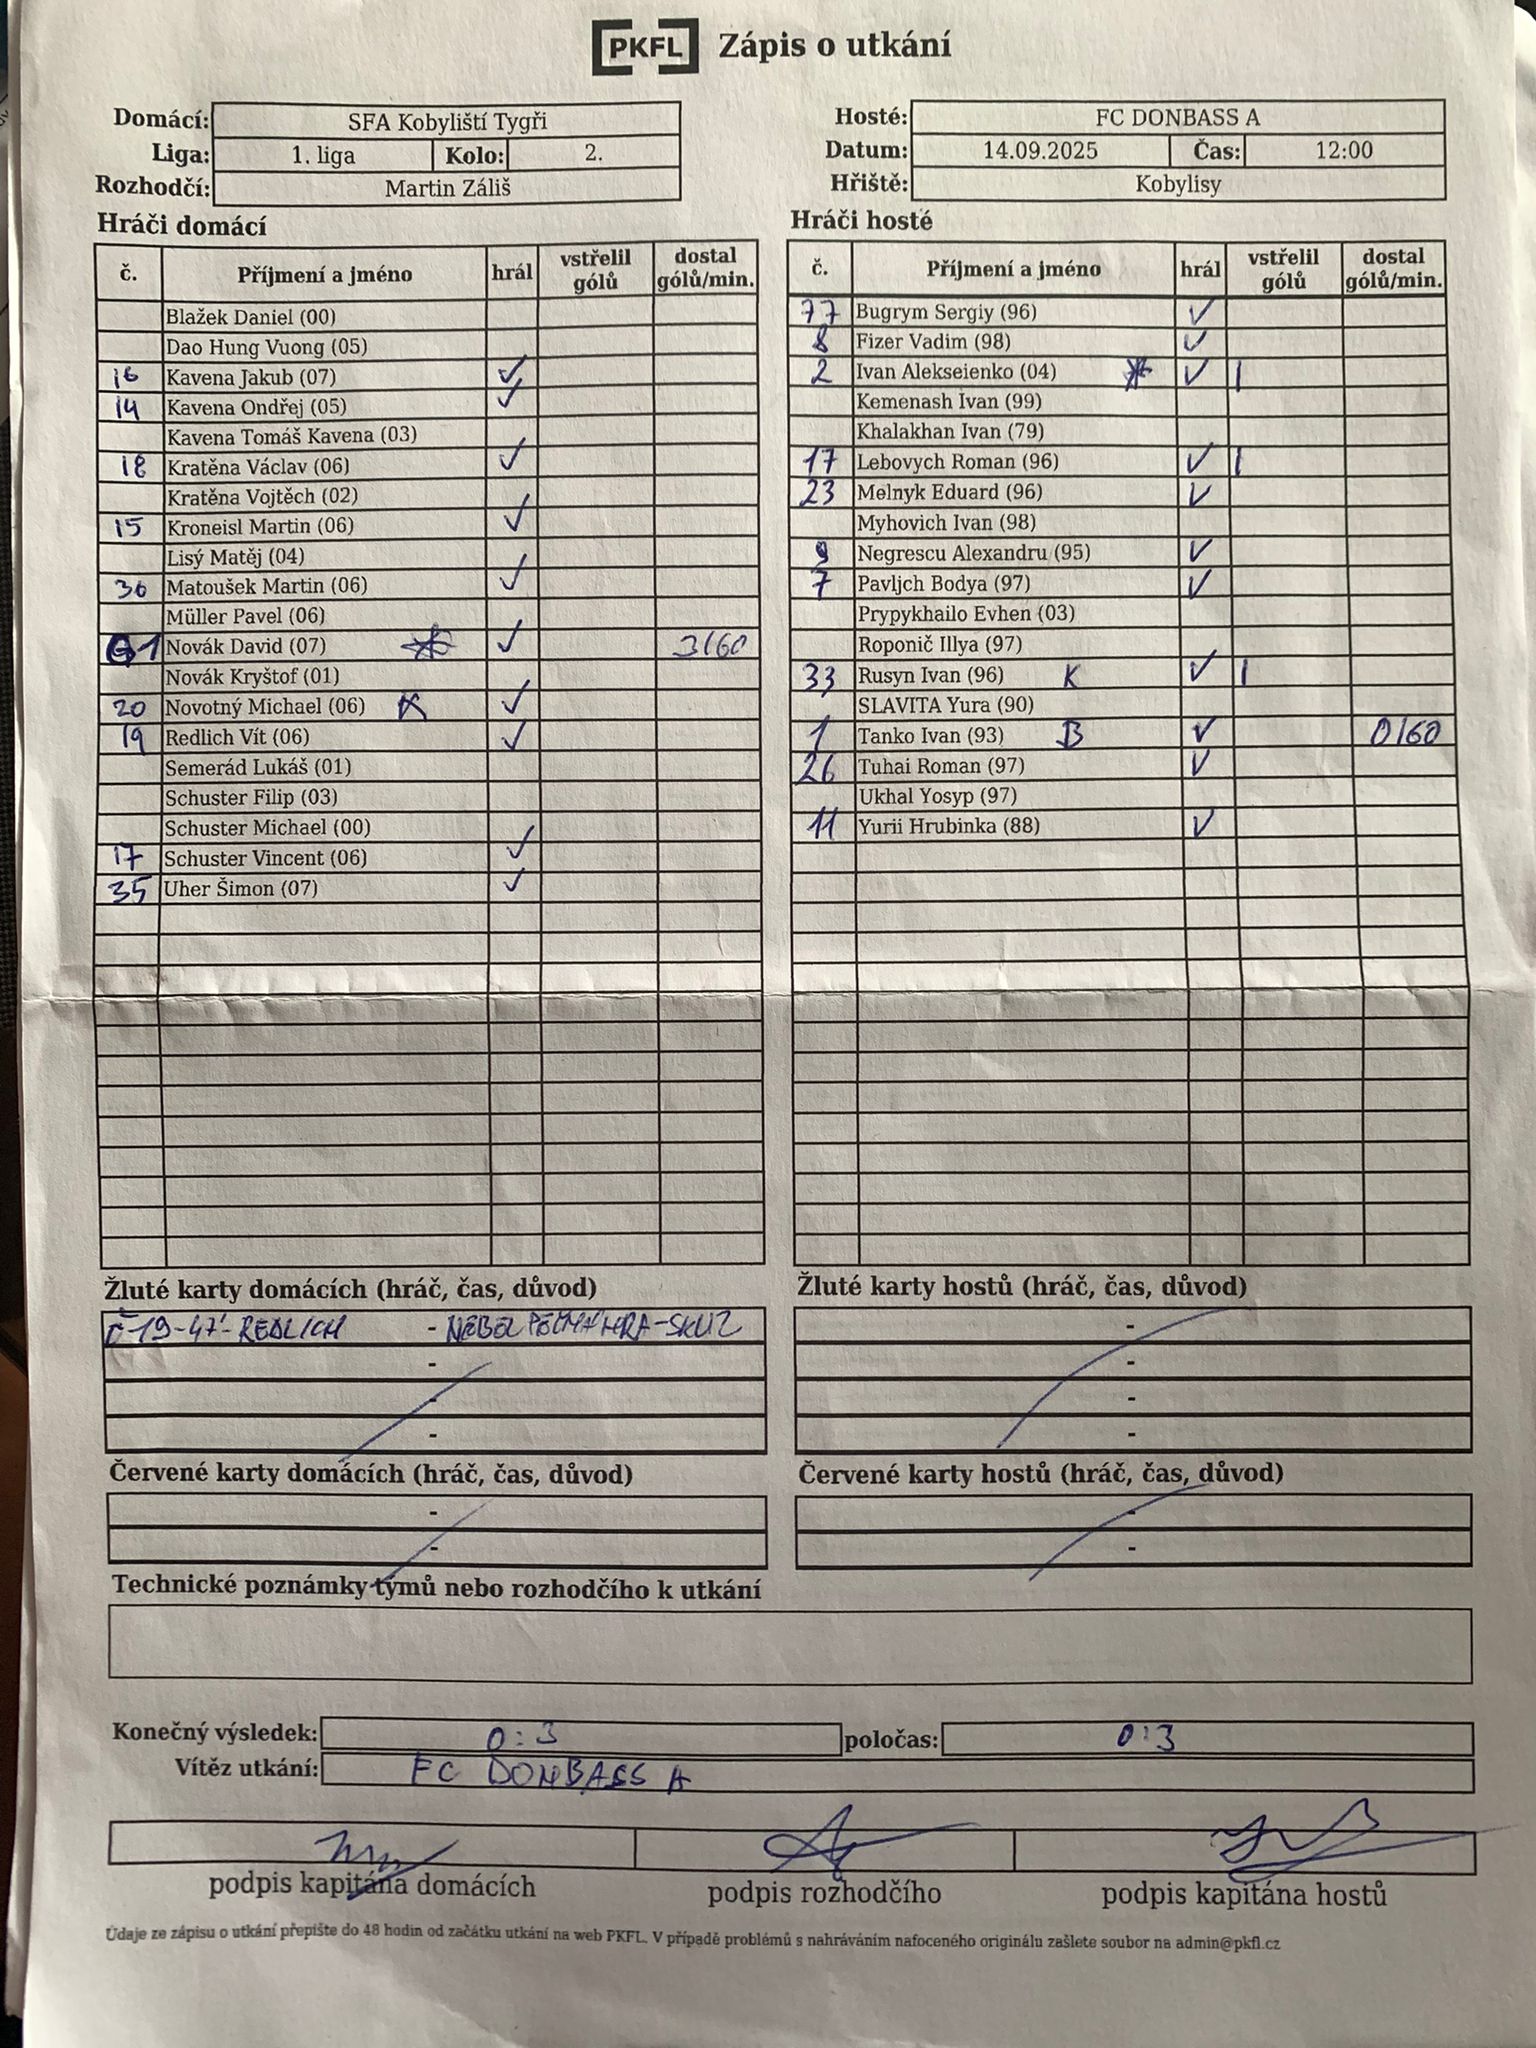 PKFL Zápis o utkání
Domácí: SFA Kobyliští Tygři
Liga: 1. liga Kolo: 2.
Rozhodčí: Martin Záliš
Hosté: FC DONBASS A
Datum: 14.09.2025 Čas: 12:00
Hřiště: Kobylisy
Hráči domácí
č. Příjmení a jméno hrál vstřelil gólů dostal gólů/min.
Blažek Daniel (00)
Dao Hung Vuong (05)
16 Kavena Jakub (07) ✓
14 Kavena Ondřej (05) ✓
Kavena Tomáš Kavena (03)
18 Kratěna Václav (06) ✓
Kratěna Vojtěch (02)
15 Kroneisl Martin (06) ✓
Lisý Matěj (04)
30 Matoušek Martin (06) ✓
Müller Pavel (06)
1 Novák David (07) ✓ 3/60
Novák Kryštof (01)
20 Novotný Michael (06) K ✓
19 Redlich Vít (06) ✓
Semerád Lukáš (01)
Schuster Filip (03)
Schuster Michael (00)
17 Schuster Vincent (06) ✓
35 Uher Šimon (07) ✓
Hráči hosté
č. Příjmení a jméno hrál vstřelil gólů dostal gólů/min.
77 Bugrym Sergiy (96) ✓
8 Fizer Vadim (98) ✓
2 Ivan Alekseienko (04) ✓ |
Kemenash Ivan (99)
Khalakhan Ivan (79)
17 Lebovych Roman (96) ✓ |
23 Melnyk Eduard (96) ✓
Myhovich Ivan (98)
9 Negrescu Alexandru (95) ✓
7 Pavljch Bodya (97) ✓
Prypykhailo Evhen (03)
Roponič Illya (97)
33 Rusyn Ivan (96) K ✓ |
SLAVITA Yura (90)
1 Tanko Ivan (93) B ✓ 0/60
26 Tuhai Roman (97) ✓
Ukhal Yosyp (97)
11 Yurii Hrubinka (88) ✓
Žluté karty domácích (hráč, čas, důvod)
Č 19-47'- REDLICH - NEBEZPEČNÁ HRA-SKLUZ
-
-
-
Žluté karty hostů (hráč, čas, důvod)
-
-
-
-
Červené karty domácích (hráč, čas, důvod)
-
-
Červené karty hostů (hráč, čas, důvod)
-
-
Technické poznámky týmů nebo rozhodčího k utkání
Konečný výsledek: 0:3 poločas: 0:3
Vítěz utkání: FC DONBASS A
podpis kapitána domácích podpis rozhodčího podpis kapitána hostů
Údaje ze zápisu o utkání přepište do 48 hodin od začátku utkání na web PKFL. V případě problémů s nahráváním nafoceného originálu zašlete soubor na admin@pkfl.cz